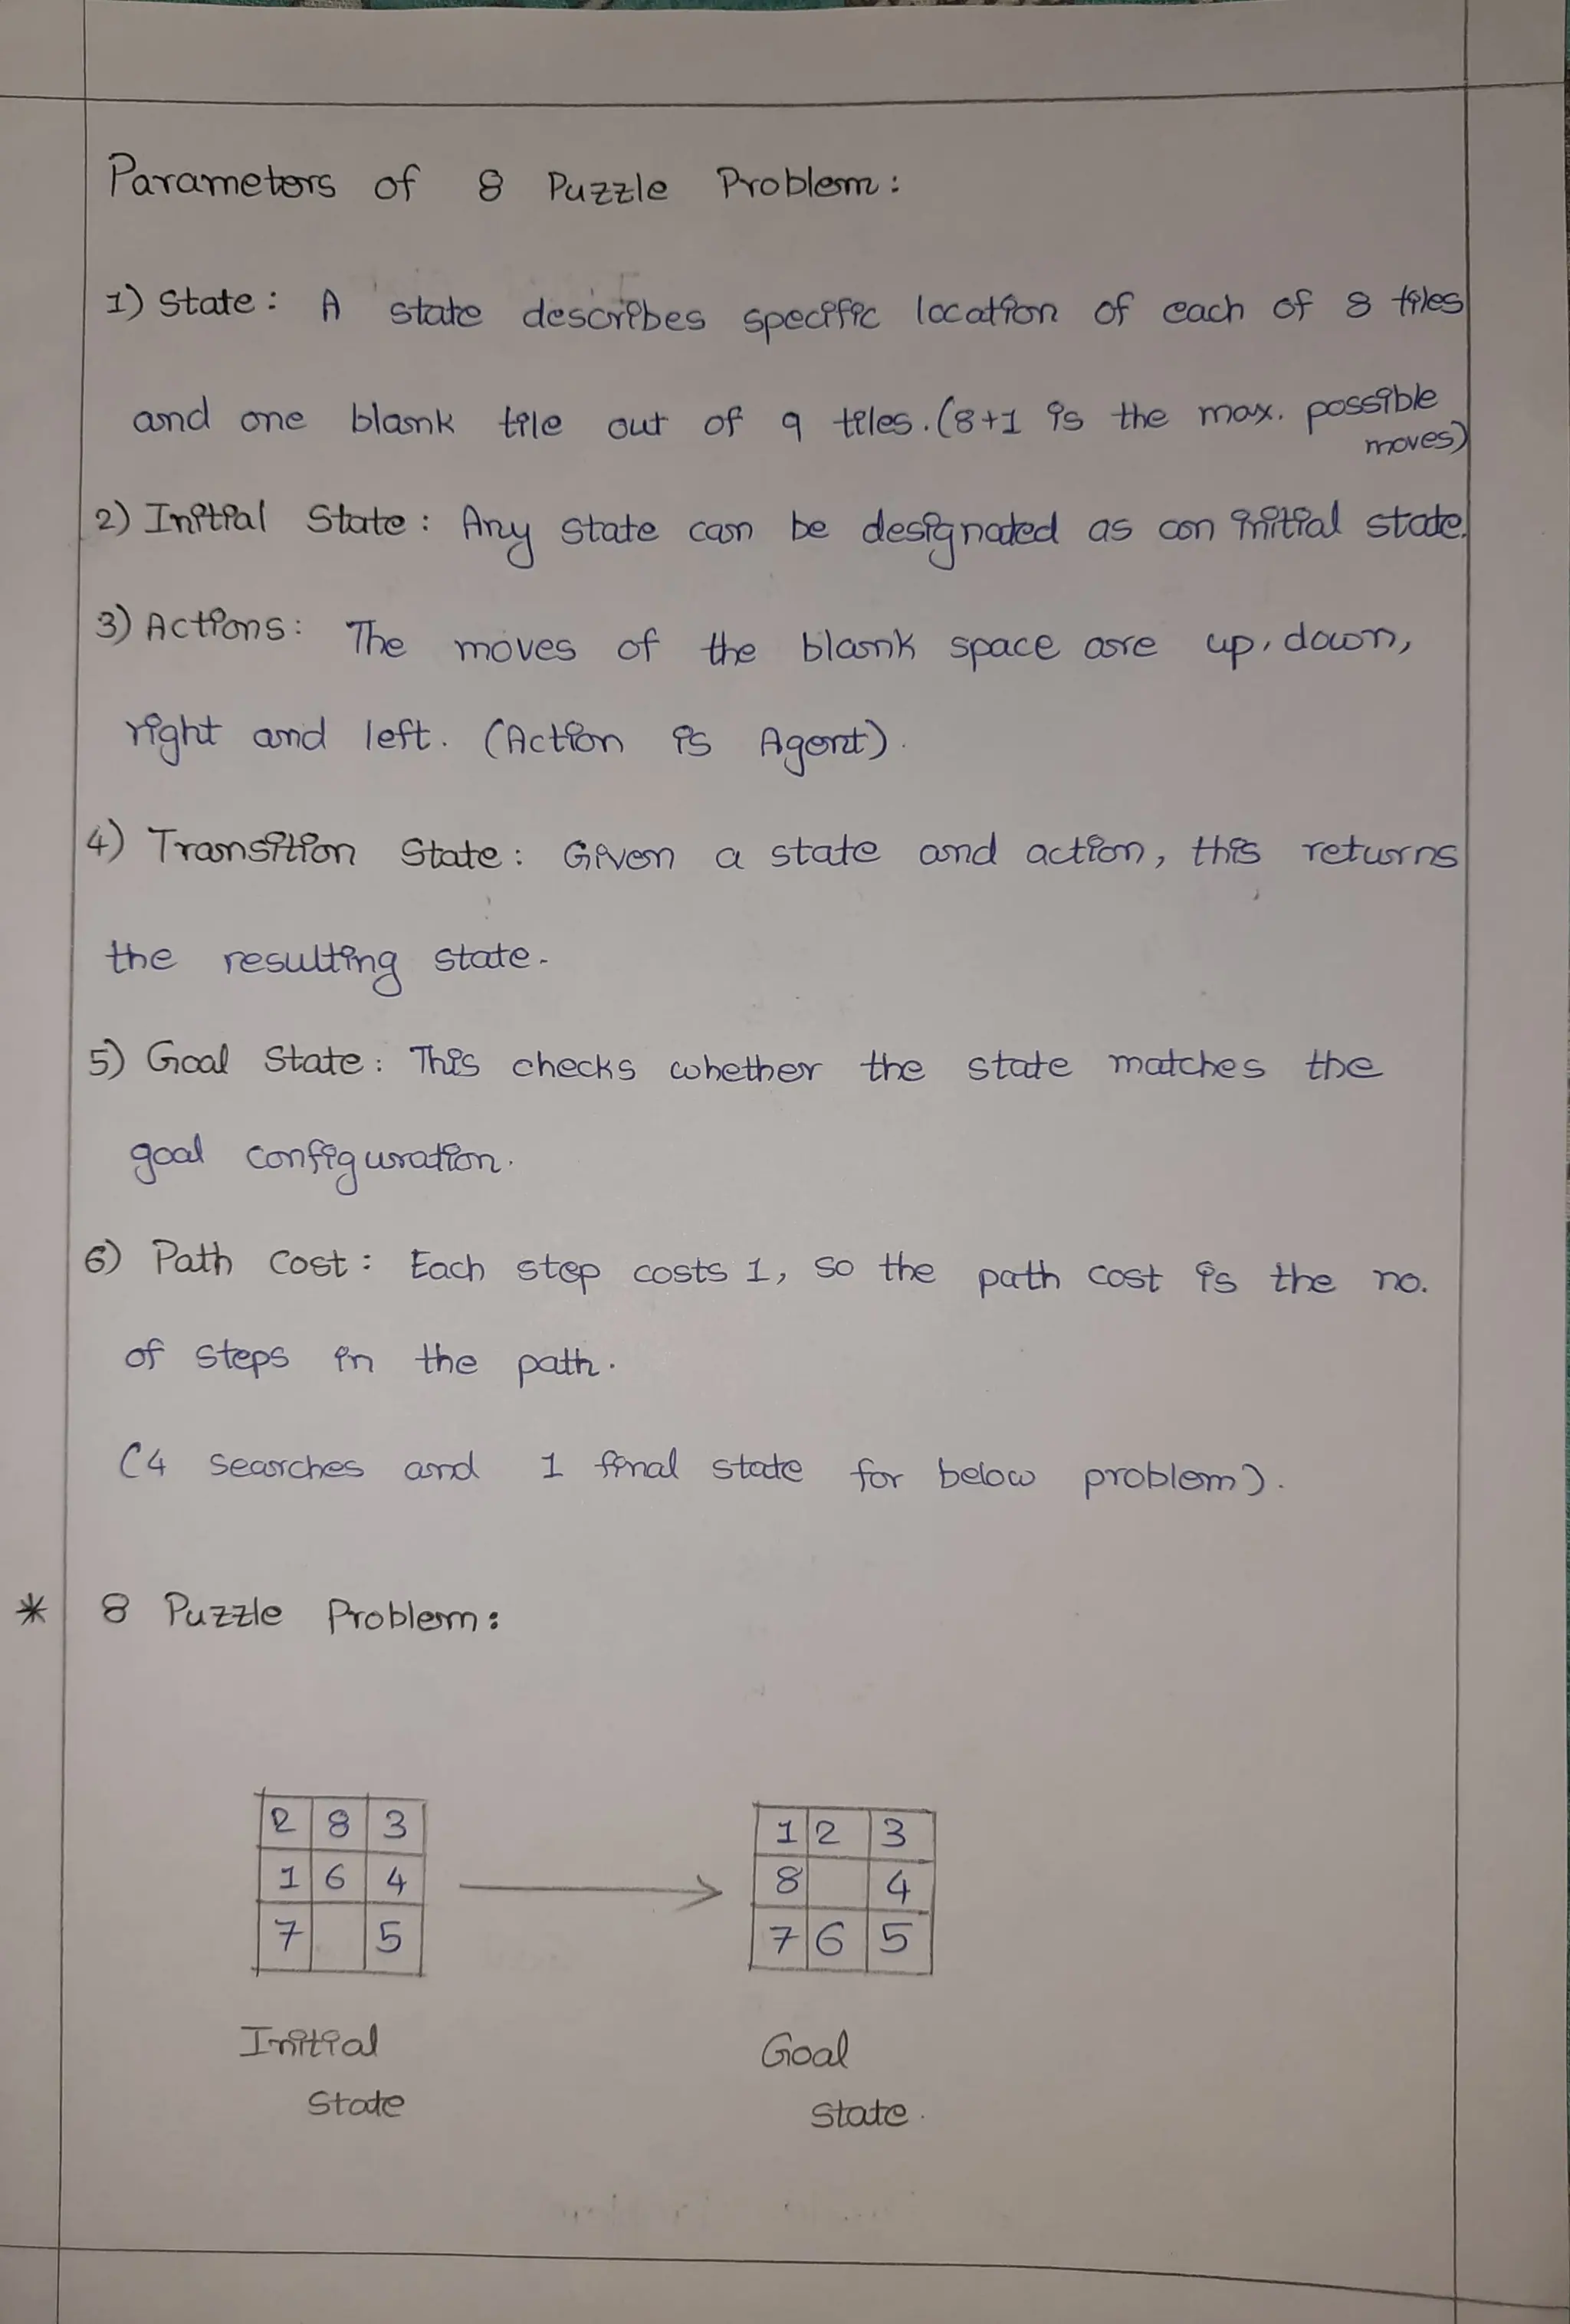 Parameters of 8 Puzzle Problem:
1) State: A state describes specific location of each of 8 tiles
and one blank tile out of 9 tiles. (8+1 is the max. possible
moves)
2) Initial State: Any state can be designated as an initial state.
3) Actions: The moves of the blank space are up, down,
right and left. (Action is Agent).
4) Transition State: Given a state and action, this returns
the resulting state.
5) Goal State: This checks whether the state matches the
goal configuration.
6) Path Cost: Each step costs 1, so the path cost is the no.
of steps in the path.
(4 searches and 1 final state for below problem).
* 8 Puzzle Problem:
2 8 3
1 6 4
7 5
Initial
State
1 2 3
8 4
7 6 5
Goal
State.